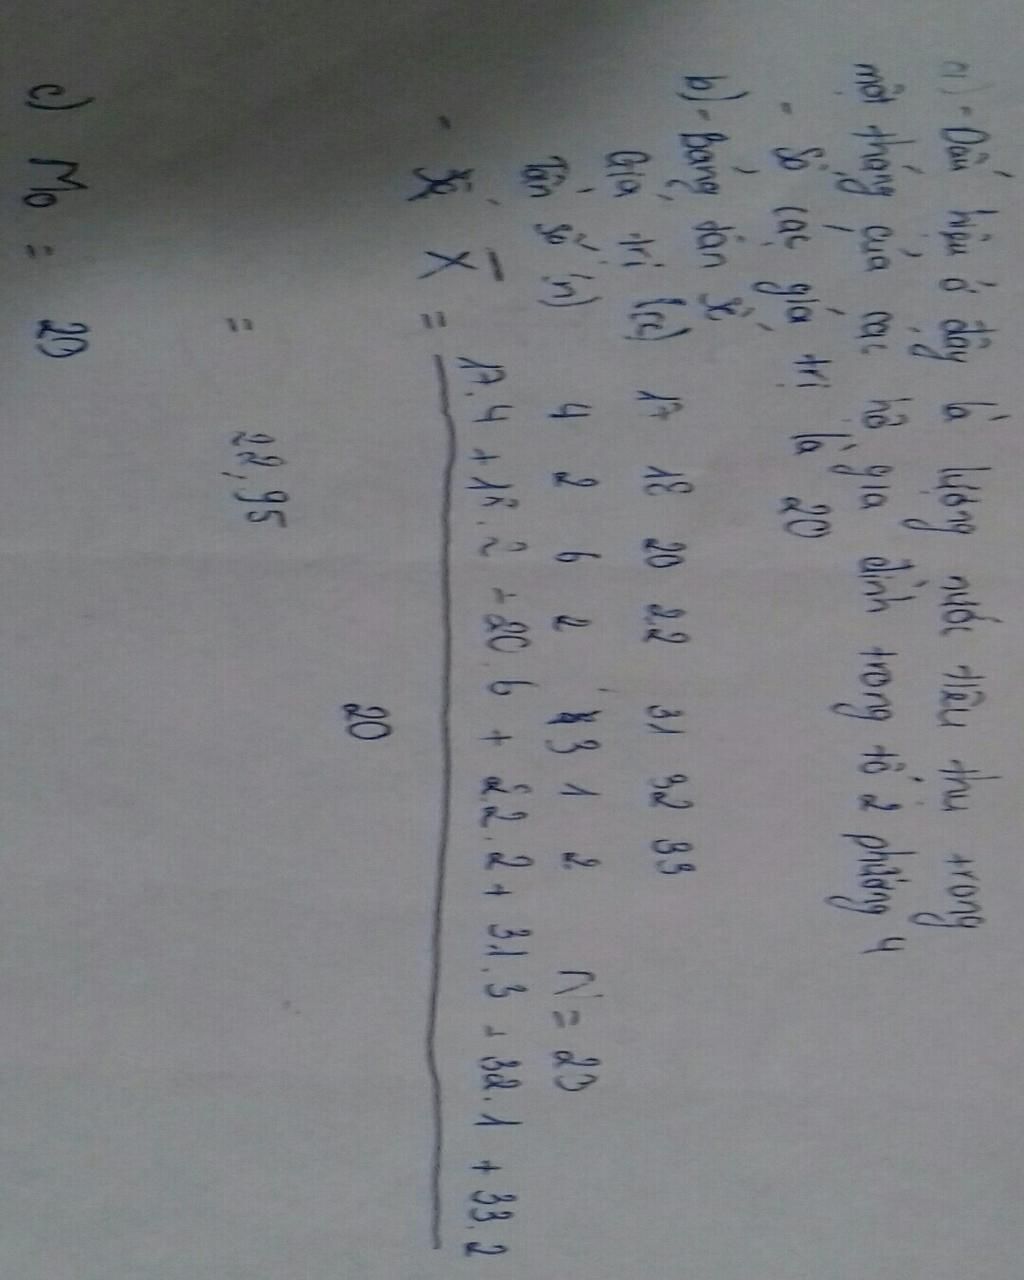 a) - Dấu hiệu ở đây là lượng nước tiêu thụ trong
một tháng của các hộ gia đình trong tổ 2 phường 4
- Số các giá trị là 20
b) - Bảng tần số
Giá trị (x) 17 18 20 22 31 32 33
Tần số (n) 4 2 6 2 3 1 2 N = 20
- X̄ = 17.4 + 18.2 + 20.6 + 22.2 + 31.3 + 32.1 + 33.2
20
= 22,95
c) Mo = 20